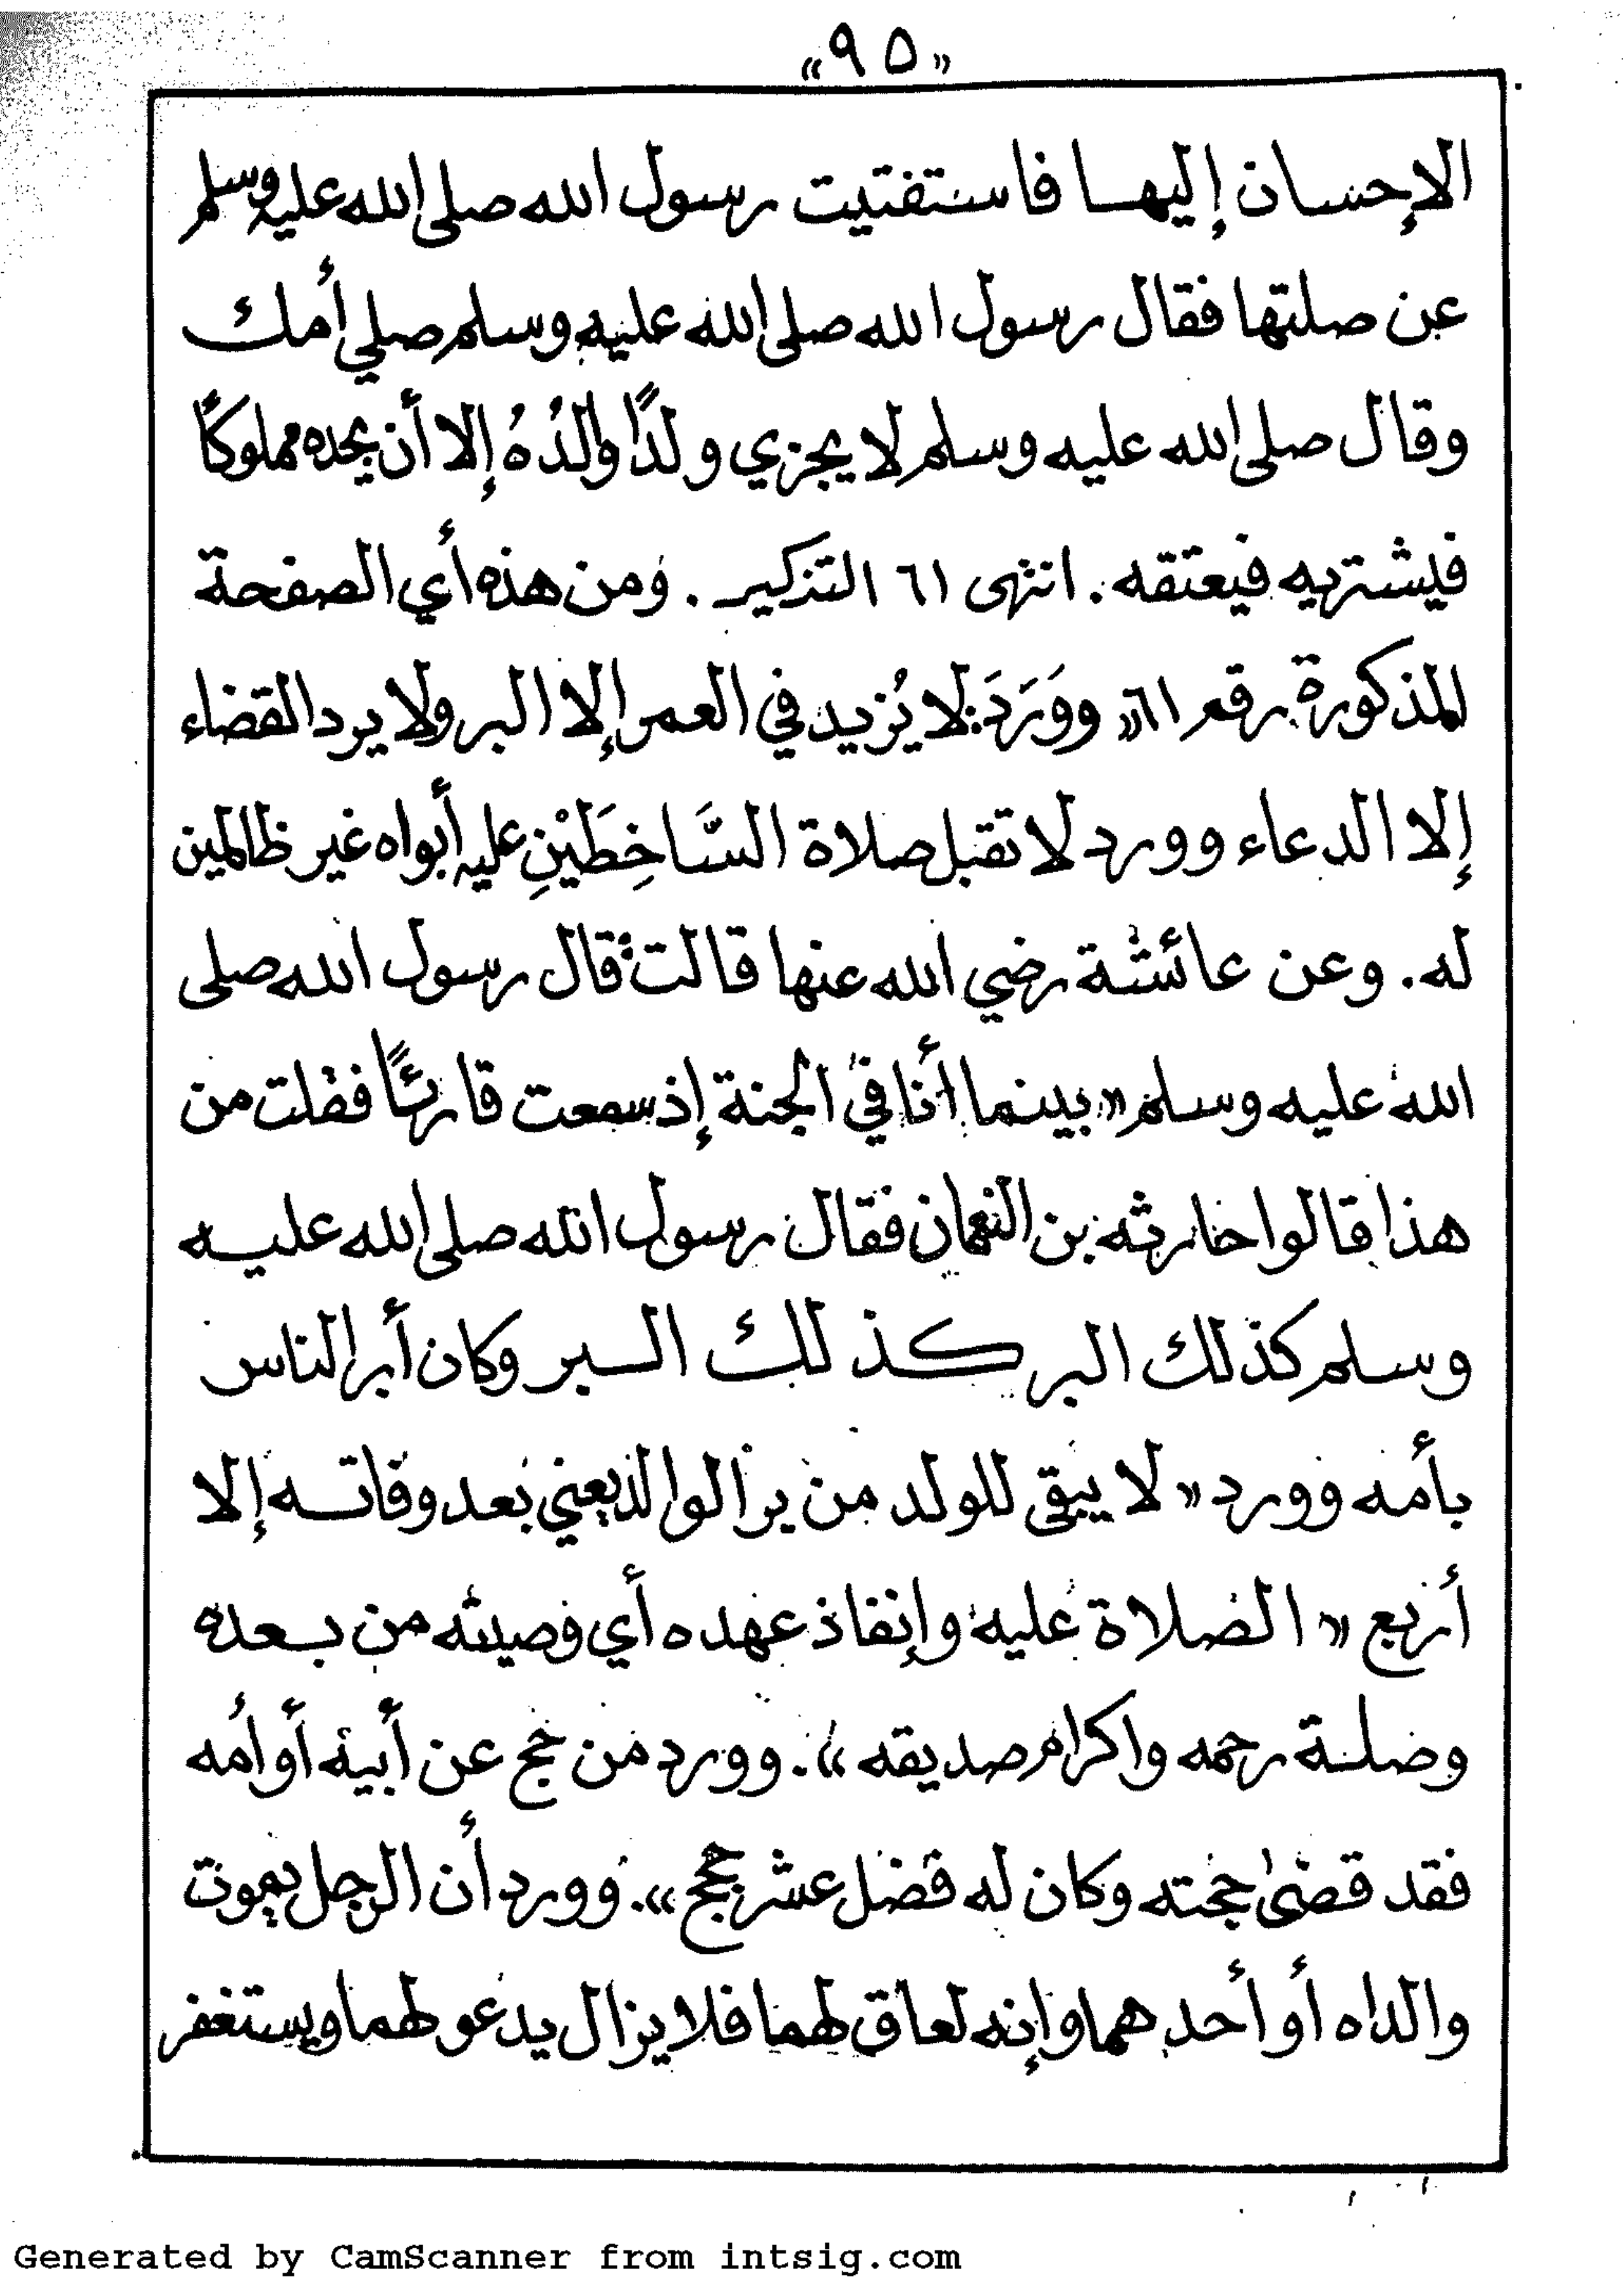 «٩٥»
الإحسان إليها فاستفتيت رسول الله صلى الله عليه وسلم
عن صلتها فقال رسول الله صلى الله عليه وسلم صلي أمك
وقال صلى الله عليه وسلم لا يجزي ولدًا والدُهُ إلا أن يجده مملوكًا
فيشتريه فيعتقه. انتهى ٦١ التذكير. ومن هذه أي الصفحة
المذكورة برقم ٦١» ووَرَدَ: لا يُزيد في العمر إلا البر ولا يرد القضاء
إلا الدعاء وورد لا تقبل صلاة السَّاخِطَيْنِ عليه أبواه غير ظالمين
له. وعن عائشة رضي الله عنها قالت: قال رسول الله صلى
الله عليه وسلم «بينما أنا في الجنة إذ سمعت قارئًا فقلت من
هذا قالوا حارثه بن النعمان فقال رسول الله صلى الله عليه
وسلم كذلك البر كذلك البر وكان أبر الناس
بأمه وورد «لا يبقى للولد من بر الوالد يعني بعد وفاته إلا
أربع «الصلاة عليه وإنفاذ عهده أي وصيته من بعده
وصلة رحمه واكرام صديقه». وورد من حج عن أبيه أو أمه
فقد قضى حجته وكان له فضل عشر حجج». وورد أن الرجل يموت
والداه أو أحدهما وإنه لعاق لهما فلا يزال يدعو لهما ويستغفر
Generated by CamScanner from intsig.com